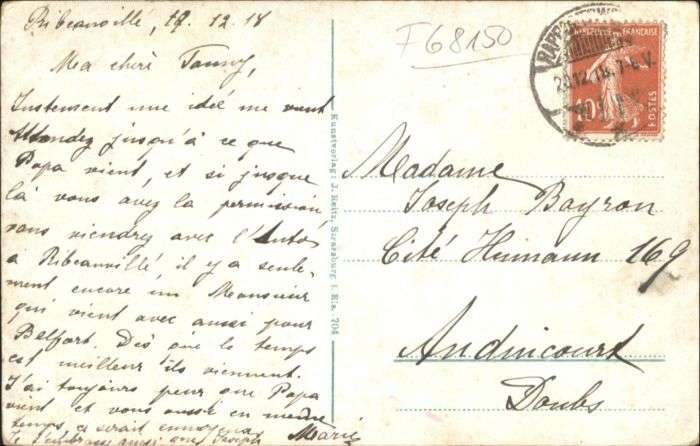 Ribeauvillé, 19.12.18
Ma chère Fanny,
Justement une idée me vient
Attendez jusqu'à ce que
Papa vient, et si jusque
là vous avez la permission,
vous viendrez avec l'Auto
à Ribeauvillé, il y a seule-
ment encore un Monsieur
qui vient avec aussi pour
Belfort. Dès que le temps
est meilleur ils viennent.
J'ai toujours peur que Papa
vient et vous aussi en même
temps, ce serait
Je t'embrasse ainsi que Joseph
Marie
Kunstverlag: J. Reitz, Strassburg i. Els. 704
F68150
RÉPUBLIQUE FRANÇAISE
10c
POSTES
RAPPOLTSWEILER
20.12.18. 7-8 V.
Madame
Joseph Bayron
Cité Heimann 169
Audincourt
Doubs